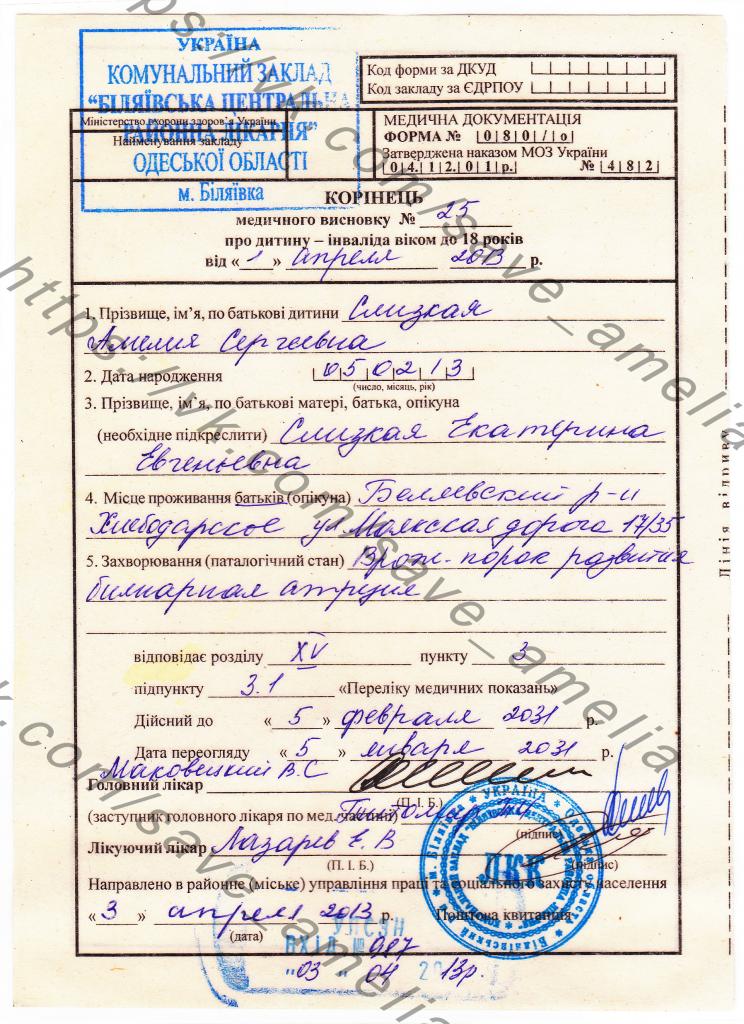 УКРАЇНА
КОМУНАЛЬНИЙ ЗАКЛАД
“БІЛЯЇВСЬКА ЦЕНТРАЛЬНА
РАЙОННА ЛІКАРНЯ”
ОДЕСЬКОЇ ОБЛАСТІ
м. Біляївка
Міністерство охорони здоров'я України
Найменування закладу
Код форми за ДКУД
Код закладу за ЄДРПОУ
МЕДИЧНА ДОКУМЕНТАЦІЯ
ФОРМА № 080/о
Затверджена наказом МОЗ України
04.12.01р. № 482
КОРІНЕЦЬ
медичного висновку № 25
про дитину – інваліда віком до 18 років
від «1» апреля 2013 р.
1. Прізвище, ім'я, по батькові дитини Слизкая
Амелия Сергеевна
2. Дата народження 050213
(число, місяць, рік)
3. Прізвище, ім'я, по батькові матері, батька, опікуна
(необхідне підкреслити) Слизкая Екатерина
Евгеньевна
4. Місце проживання батьків (опікуна) Беляевский р-н
Хлебодарское ул Маякская дорога 17/35
5. Захворювання (паталогічний стан) Врож. порок развития
билиарная атрезия
відповідає розділу XV пункту 3
підпункту 3.1 «Переліку медичних показань»
Дійсний до «5» февраля 2031 р.
Дата перегляду «5» января 2031 р.
Маковецкий В.С
Головний лікар
(П. І. Б.)
(заступник головного лікаря по мед. частині)
(підпис)
Лікуючий лікар Лазарев Е. В
(П. І. Б.) (підпис)
Направлено в районне (міське) управління праці та соціального захисту населення
«3» апреля 2013 р. Поштова квитанція
(дата)
УПСЗН
ВХІД № 987
"03" 04 2013р.
ЛКК
Лінія відриву
https://vk.com/save_amelia